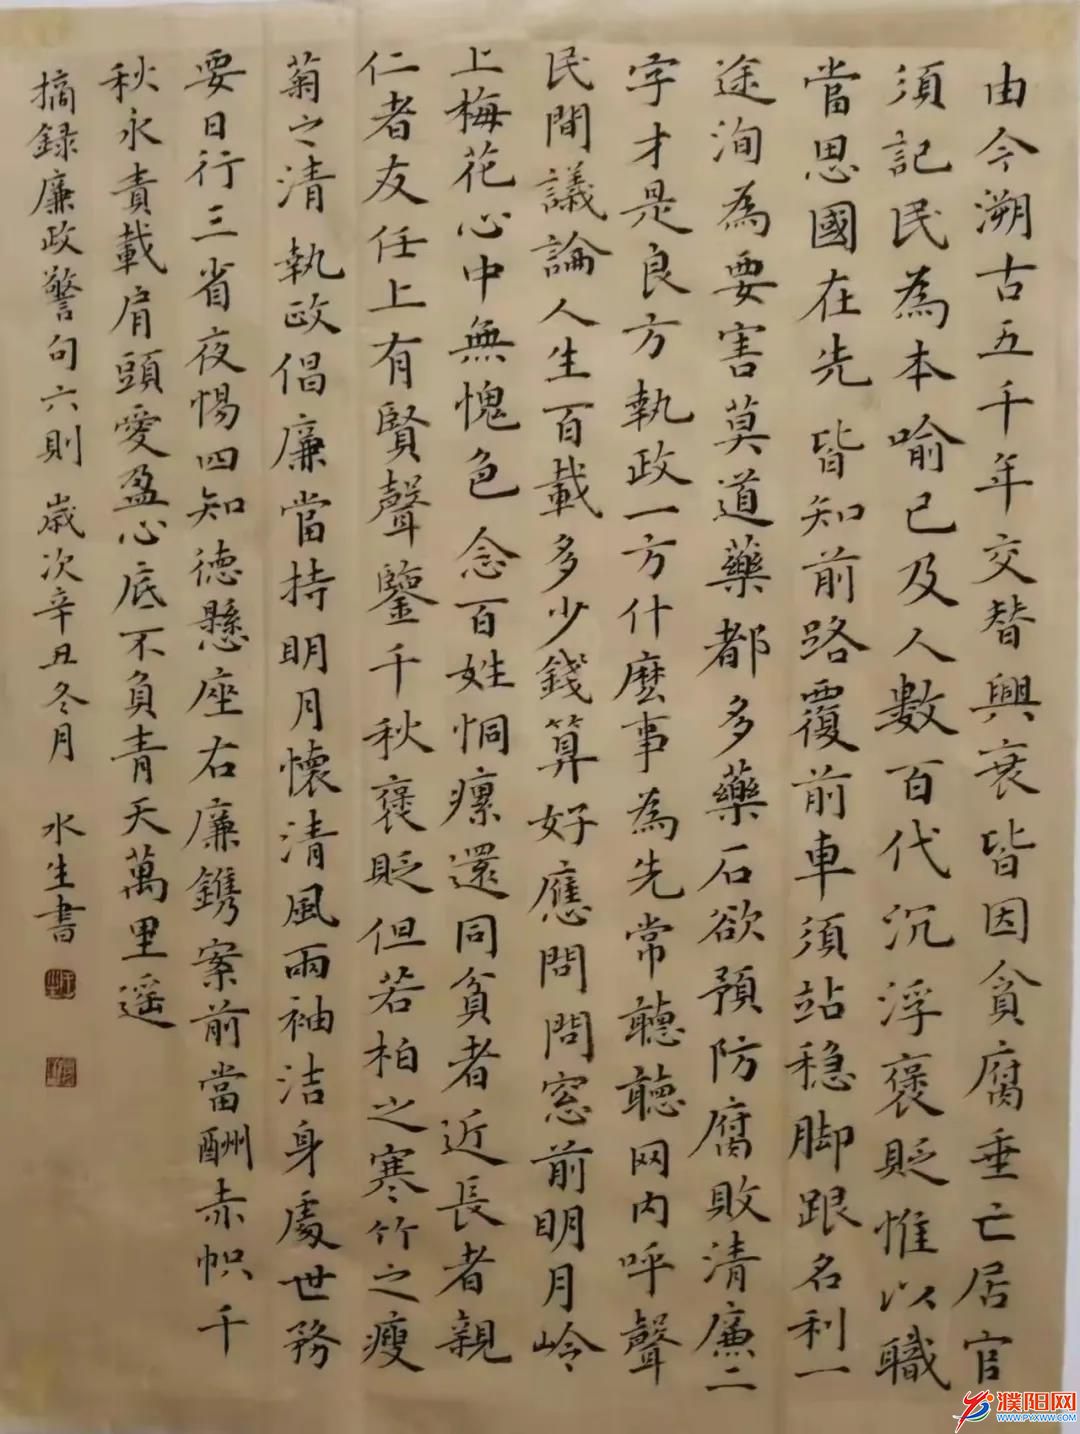 由今溯古五千年交替興衰皆因貪腐垂亡居官
須記民為本喻已及人數百代沉浮褒貶惟以職
當思國在先皆知前路覆前車須站稳脚跟名利一
途洵為要害莫道藥都多藥石欲預防腐敗清廉二
字才是良方執政一方什麼事為先常聽聽网内呼聲
民間議論人生百載多少錢算好應問問窓前明月岭
上梅花心中無愧色念百姓恫瘝還同貧者近長者親
仁者友任上有賢聲鑒千秋褒貶但若柏之寒竹之瘦
菊之清執政倡廉當持明月懷清風兩袖洁身處世務
要日行三省夜惕四知德懸座右廉鐫案前當酬赤帜千
秋永責載肩頭愛盈心底不負青天萬里遥
摘録廉政警句六則歲次辛丑冬月 水生書
濮陽网
WWW.PYXWW.COM